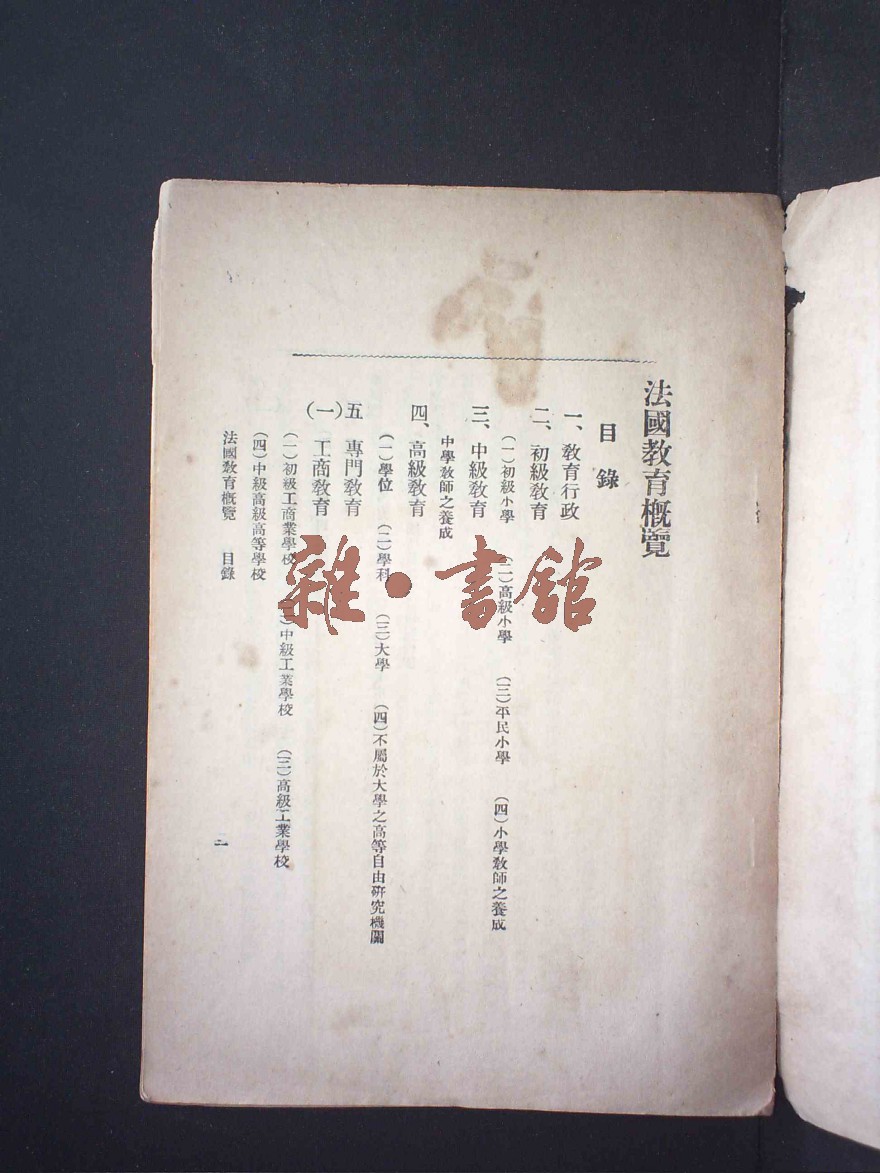 法國教育概覽
目錄
一、教育行政
二、初級教育
(一)初級小學 (二)高級小學 (三)平民小學 (四)小學教師之養成
三、中級教育
中學教師之養成
四、高級教育
(一)學位 (二)學科 (三)大學 (四)不屬於大學之高等自由研究機關
五 專門教育
(一)工商教育
(一)初級工商業學校 (二)中級工業學校 (三)高級工業學校
(四)中級高級高等學校
法國教育概覽 目錄
二
雜·書館